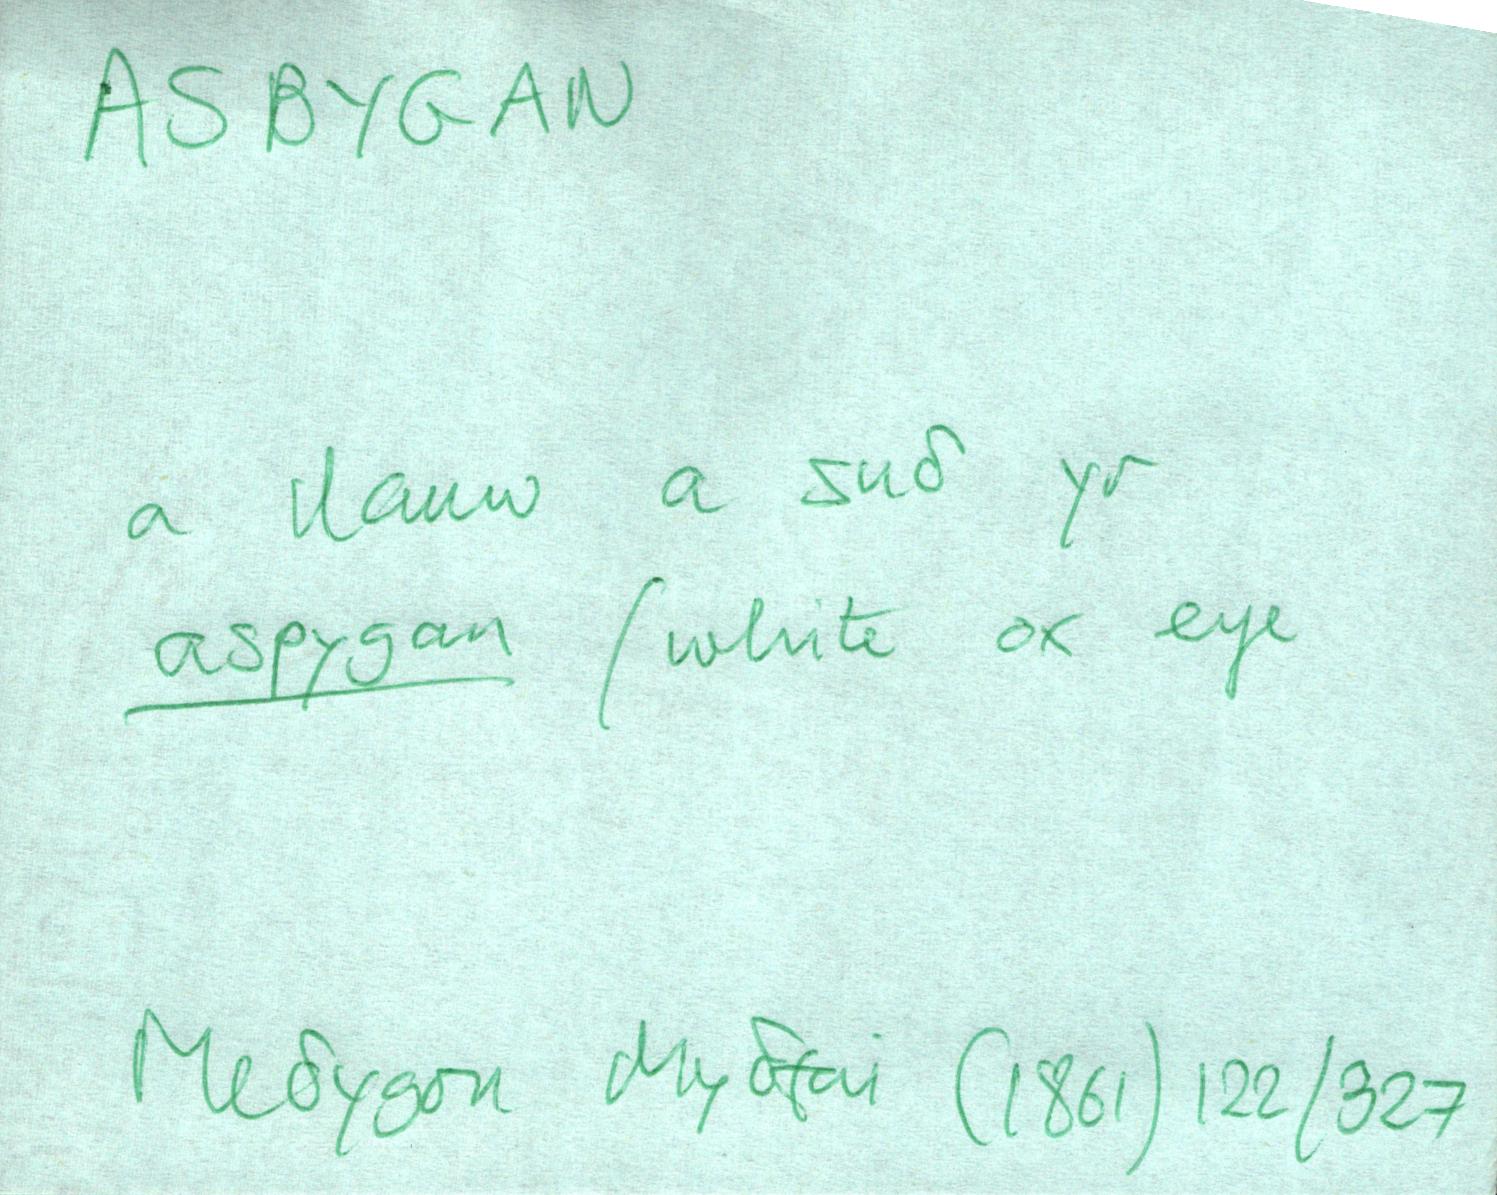 ASBYGAN
a llanw a suδ yr
aspygan (white ox eye
Meδygon Myδfai (1861) 122/327